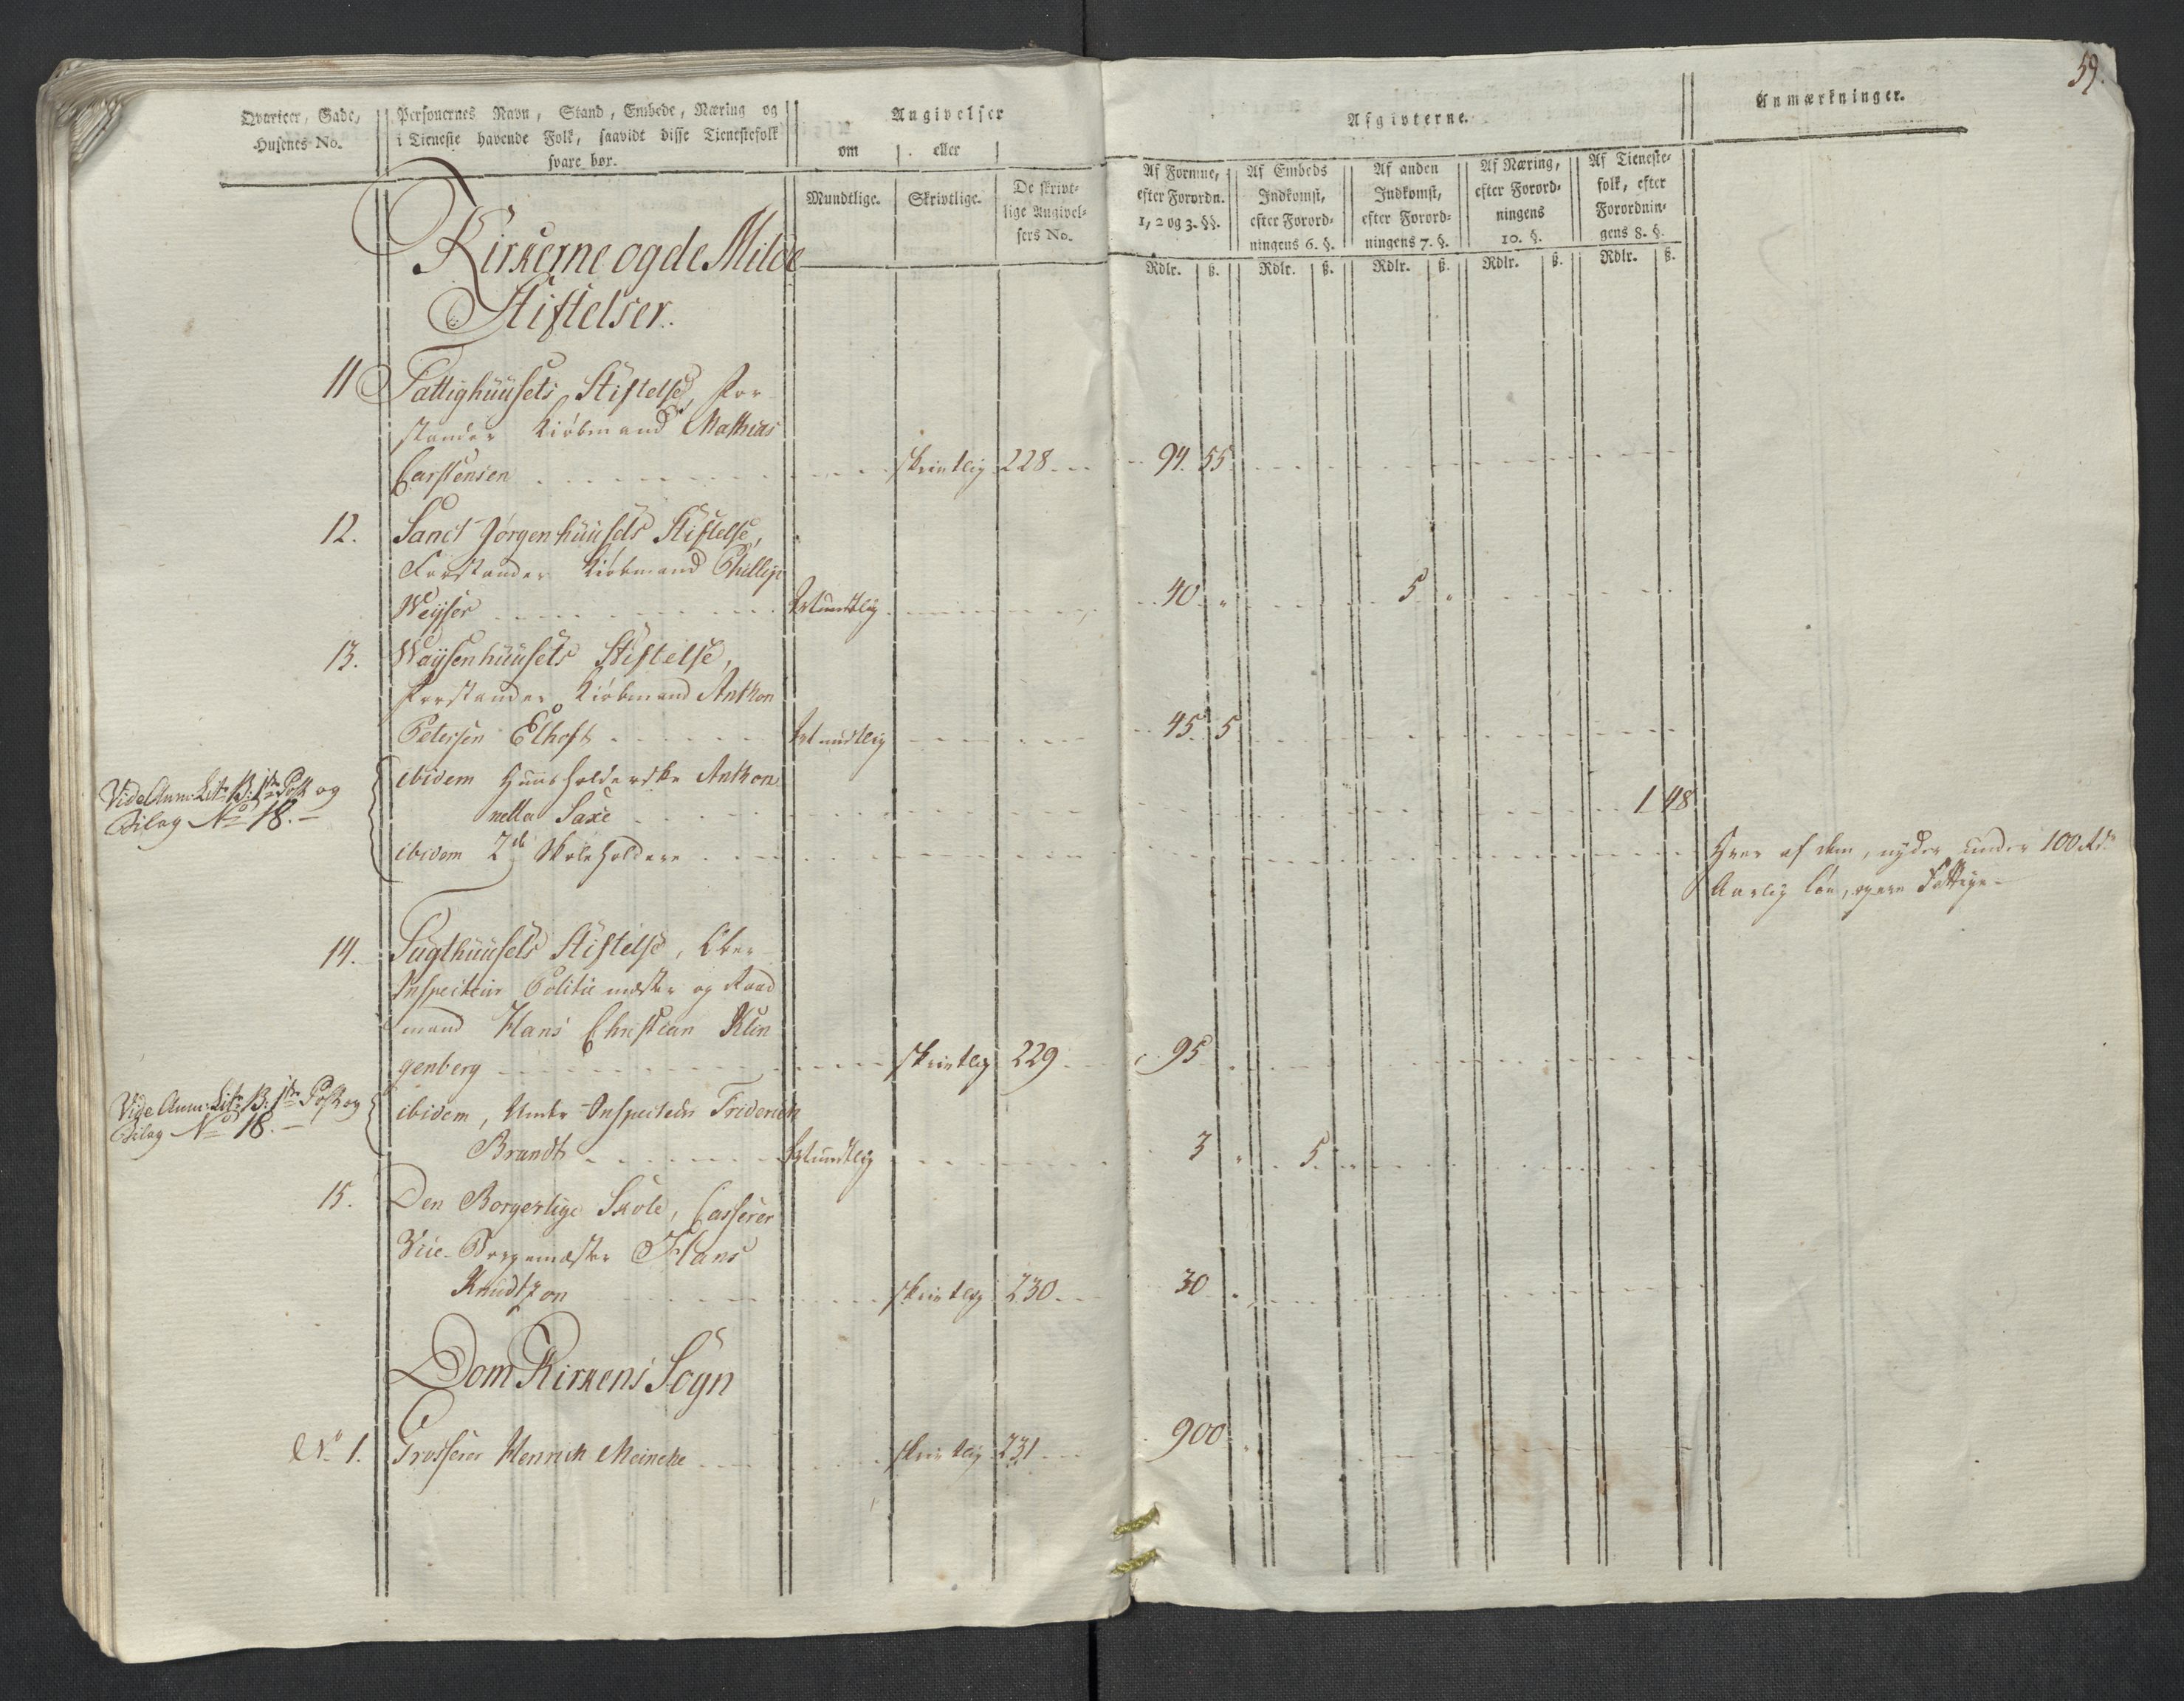 Qvarteer, Gade,
Husenes No.
Personernes Navn, Stand, Embede, Næring og
i Tieneste havende Folk, saavidt disse Tienestefolk
svare bør.
Angivelser
om eller
Mundtlige. Skrivtlige. De skrivt-
lige Angivel-
sers No.
Kirkerne og de Milde
Stiftelser.
11 Fattighuusets Stiftelse, For-
stander Kiøbmand Mathias
Carstensen skrivtlig 228 94. 55
12. Sanct Jørgen huusets Stiftelse,
Forstander Kiøbmand Phillip
Weyser Mundtlig 40 " 5 "
13. Waysenhuusets Stiftelse,
Forstander Kiøbmand Anthon
Petersen Elhoft Mundtlig 45 5
Vide Anm: Litr. B: 1ste Post og
Bilag No 18.
ibidem Huusholderske Anthon
netta Saxe 1 48
ibidem 2de Skoleholdere
Hver af dem, nyder under 100 Rd.
Aarlig Løn, og ere Fattige
14. Tugthuusets Stiftelse, Ober
Inspecteur Politiemester og Raad
mand Hans Christian Klin
genberg skrivtlig 229 95
Vide Anm: Litr. B: 1ste Post og
Bilag No 18.
ibidem, Under-Inspecteur Friderich
Brandt Mundtlig 3 " 5 "
15. Den Borgerlige Skole, Casserer
Vice-Borgemester Hans
Knudtzon skrivtlig 230 30
Dom Kirkens Sogn
No 1. Grosserer Henrich Meincke skrivtlig 231 900
59.
Afgivterne.
Anmærkninger.
Af Formue,
efter Forordn.
1, 2 og 3. §§.
Af Embeds
Indkomst,
efter Forord-
ningens 6. §.
Af anden
Indkomst,
efter Forord-
ningens 7. §.
Af Næring,
efter Forord-
ningens
10. §.
Af Tieneste-
folk, efter
Forordnin-
gens 8. §.
Rdlr. ß. Rdlr. ß. Rdlr. ß. Rdlr. ß. Rdlr. ß.